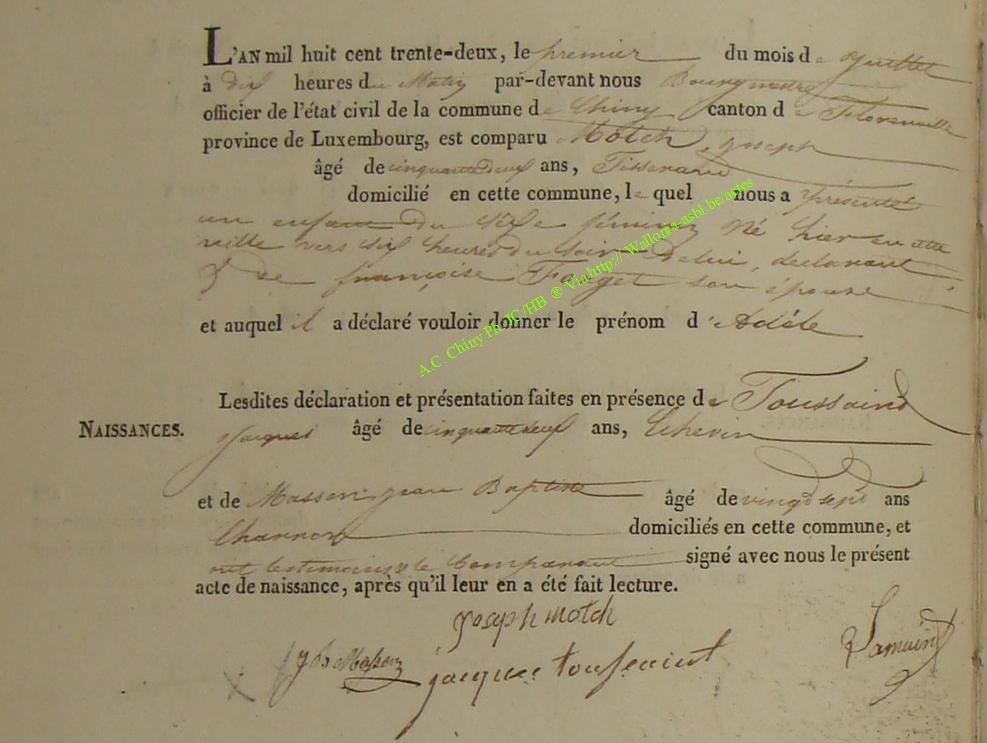 L'AN mil huit cent trente-deux, le premier du mois de Juillet
à dix heures du Matin par-devant nous Bourgmestre
officier de l'état civil de la commune de Chiny canton de Florenville
province de Luxembourg, est comparu Motch, Joseph
âgé de cinquante deux ans, Tisserand
domicilié en cette commune, le quel nous a présenté
un enfant du sexe féminin Né hier en cette
ville vers dix heures du soir de lui, déclarant
& de françoise son épouse
et auquel il a déclaré vouloir donner le prénom d'Adéle
A.C. Chiny Ph JC/HB ® Via http:// Wallonia-asbl.be/artes
Lesdites déclaration et présentation faites en présence de Toussaint
NAISSANCES. Jacques âgé de cinquante ans, Echevin
et de Masson jean Baptiste âgé de vingt sept ans
domiciliés en cette commune, et
ont les témoins & le Comparant signé avec nous le présent
acte de naissance, après qu'il leur en a été fait lecture.
joseph motch
jb Masson jacques toussaint